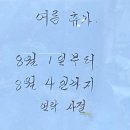 여름 휴가.
8월 1일부터
8월 4일까지